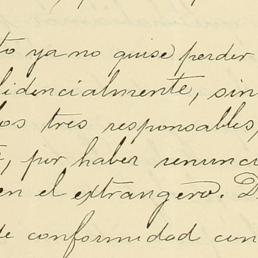 to ya no quise perder
idencialmente, sin
los tres responsables,
, por haber renunci
en el extrangero. D
de conformidad con